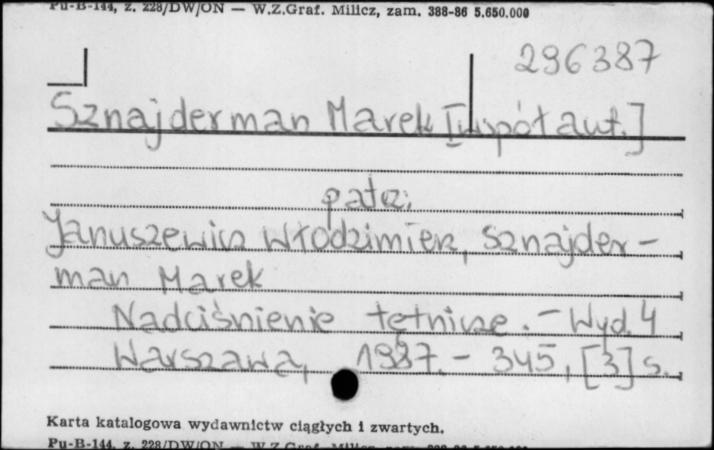 Pu-B-144, z. 228/DW/ON — W.Z.Graf. Milicz, zam. 388-86 5.650.000
296387
Sznajderman Marek [współaut.]
patrz:
Januszewicz Włodzimierz, Sznajder-
man Marek
Nadciśnienie tętnicze. - Wyd. 4
Warszawa, 1987. - 345, [3] s.
Karta katalogowa wydawnictw ciągłych i zwartych.
Pu-B-144, z. 228/DW/ON — W.Z.Graf. Milicz, zam.